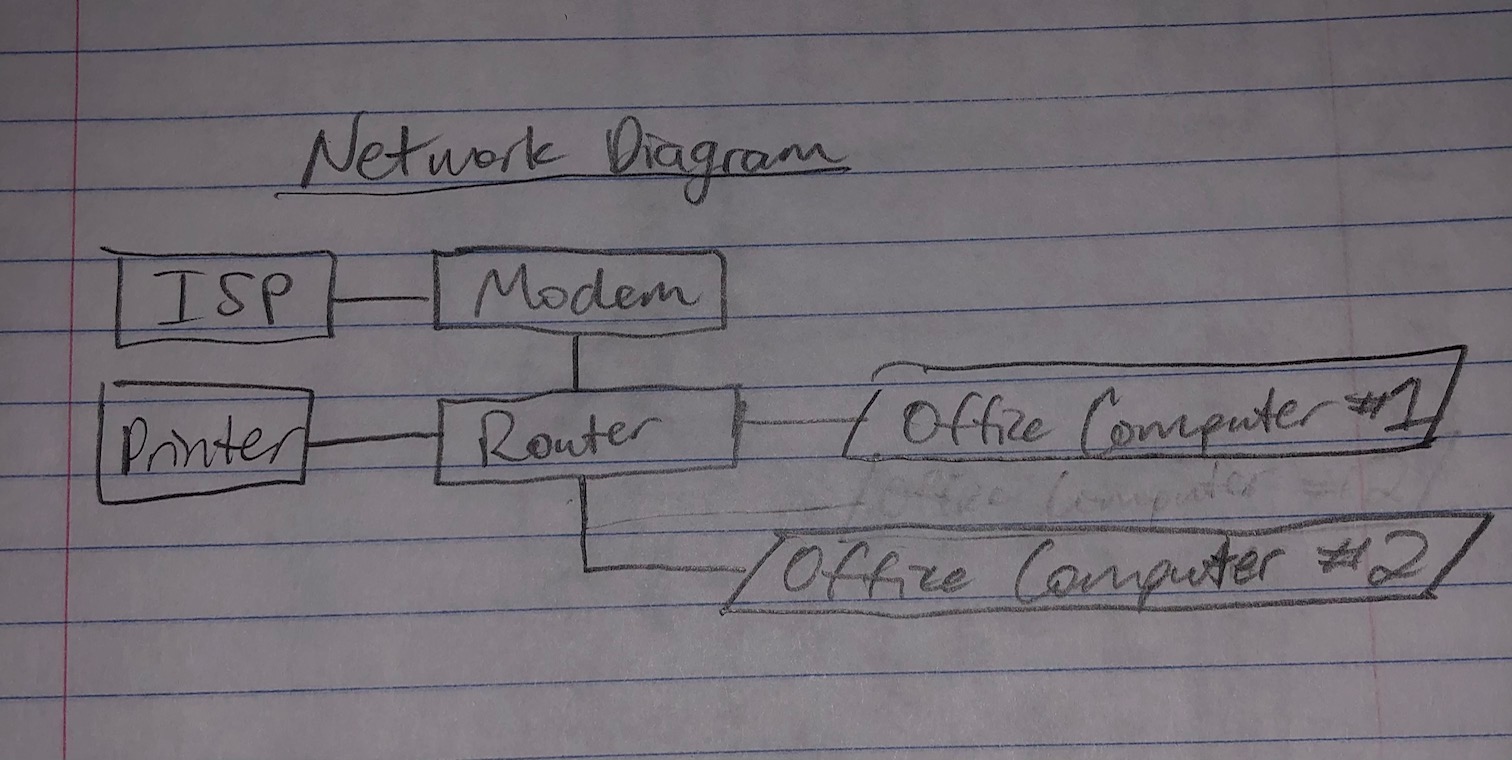 Network Diagram
ISP
Modem
Printer
Router
Office Computer #1
Office Computer #2
Office Computer #2